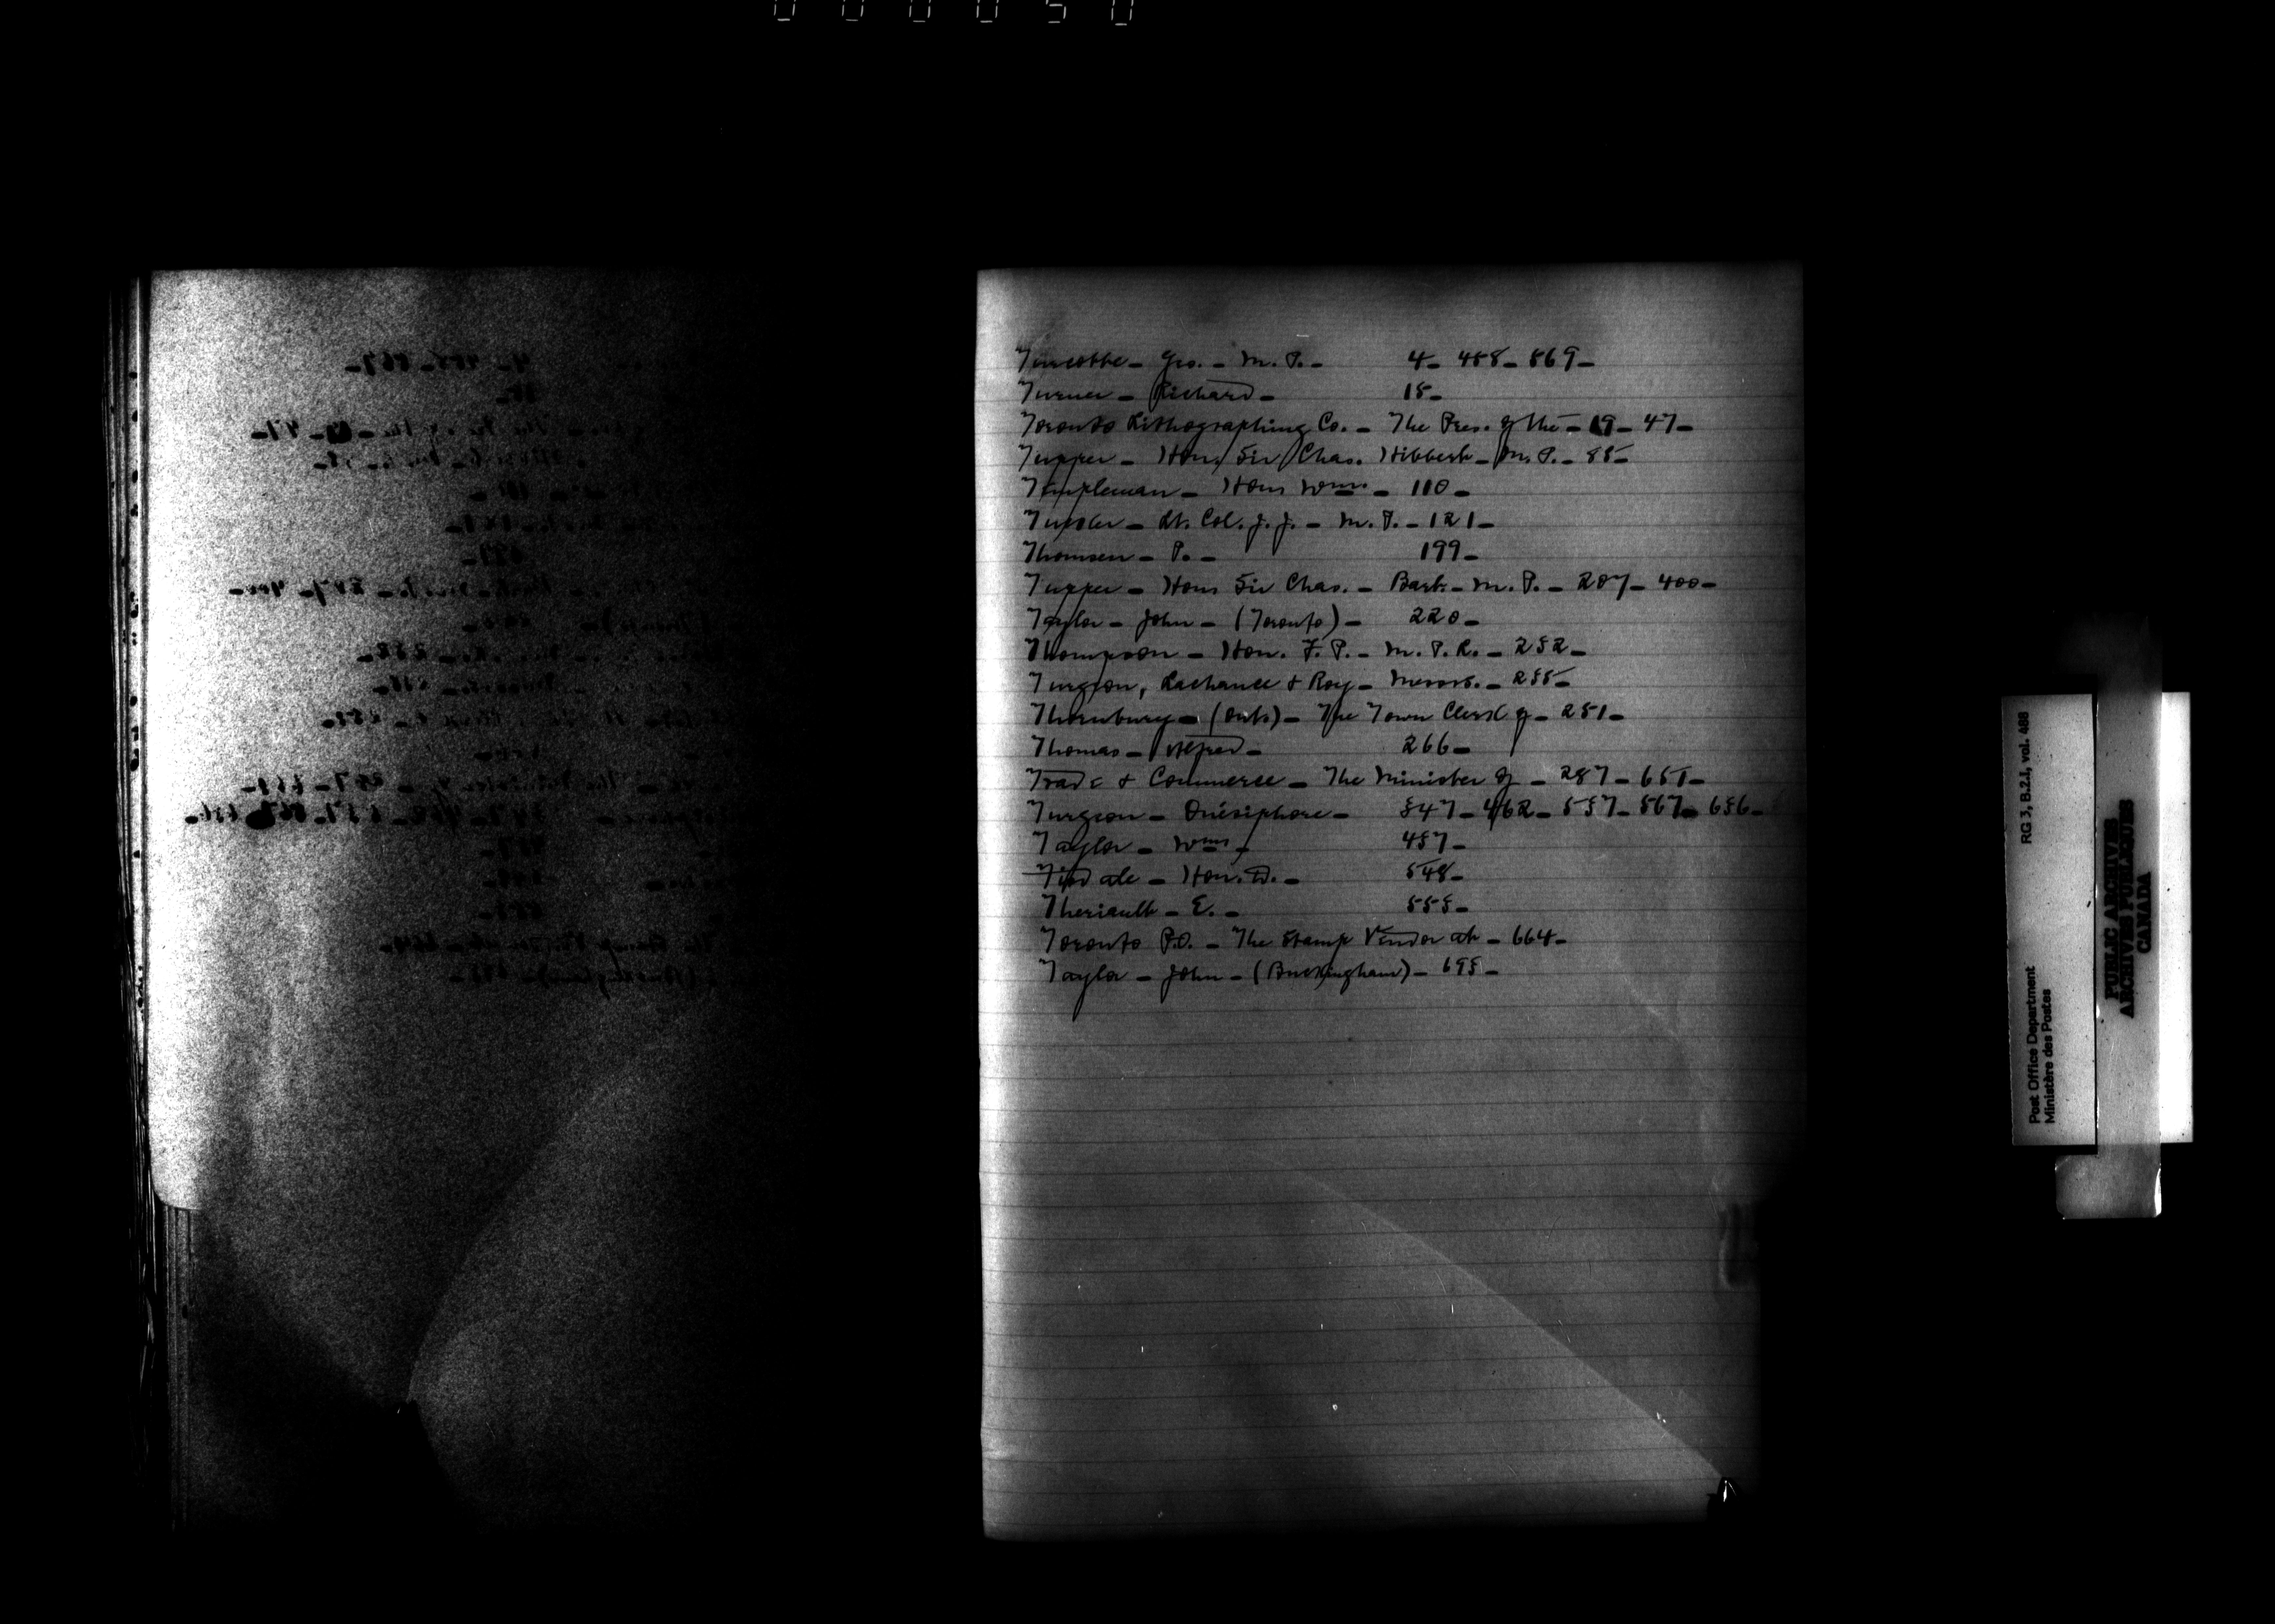 000050
Turcotte - Geo. - M. P. - 4 - 458 - 569 -
Turner - Richard - 15 -
Toronto Lithographing Co. - The Pres. of the - 19 - 47 -
Tupper - Hon. Sir Chas. Hibbert - M. P. - 85 -
Templeman - Hon. Wm. - 110 -
Lt. Col. J. J. - M. P. - 121 -
Thomsen - P. - 199 -
Tupper - Hon. Sir Chas. - Bart. - M. P. - 207 - 400 -
Taylor - John - (Toronto) - 220 -
Thompson - Hon. F. P. - M. P. R. - 232 -
Turgeon, Lachance & Roy - Messrs. - 235 -
Thornbury - (Onto) - The Town Clerk of - 251 -
Thomas - Alfred - 266 -
Trade & Commerce - The Minister of - 287 - 651 -
Turgeon - Onésiphore - 347 - 462 - 557 - 567 - 656 -
Taylor - Wm. - 457 -
Tisdale - Hon. D. - 548 -
Theriault - E. - 555 -
Toronto P.O. - The Stamp Vendor at - 664 -
Taylor - John - (Buckingham) - 695 -
Post Office Department
Ministère des Postes
RG 3, B.2.1, vol. 488
PUBLIC ARCHIVES
ARCHIVES PUBLIQUES
CANADA